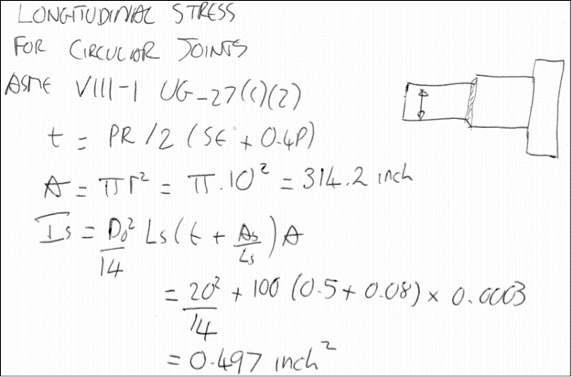 LONGITUDINAL STRESS
FOR CIRCULAR JOINTS
ASME VIII-1 UG-27(c)(2)
t = PR/2 (SE + 0.4P)
A = πr² = π.10² = 314.2 inch
Is = Do²/14 Ls(t + As/Ls)A
= 20²/14 + 100 (0.5 + 0.08) × 0.0003
= 0.497 inch²